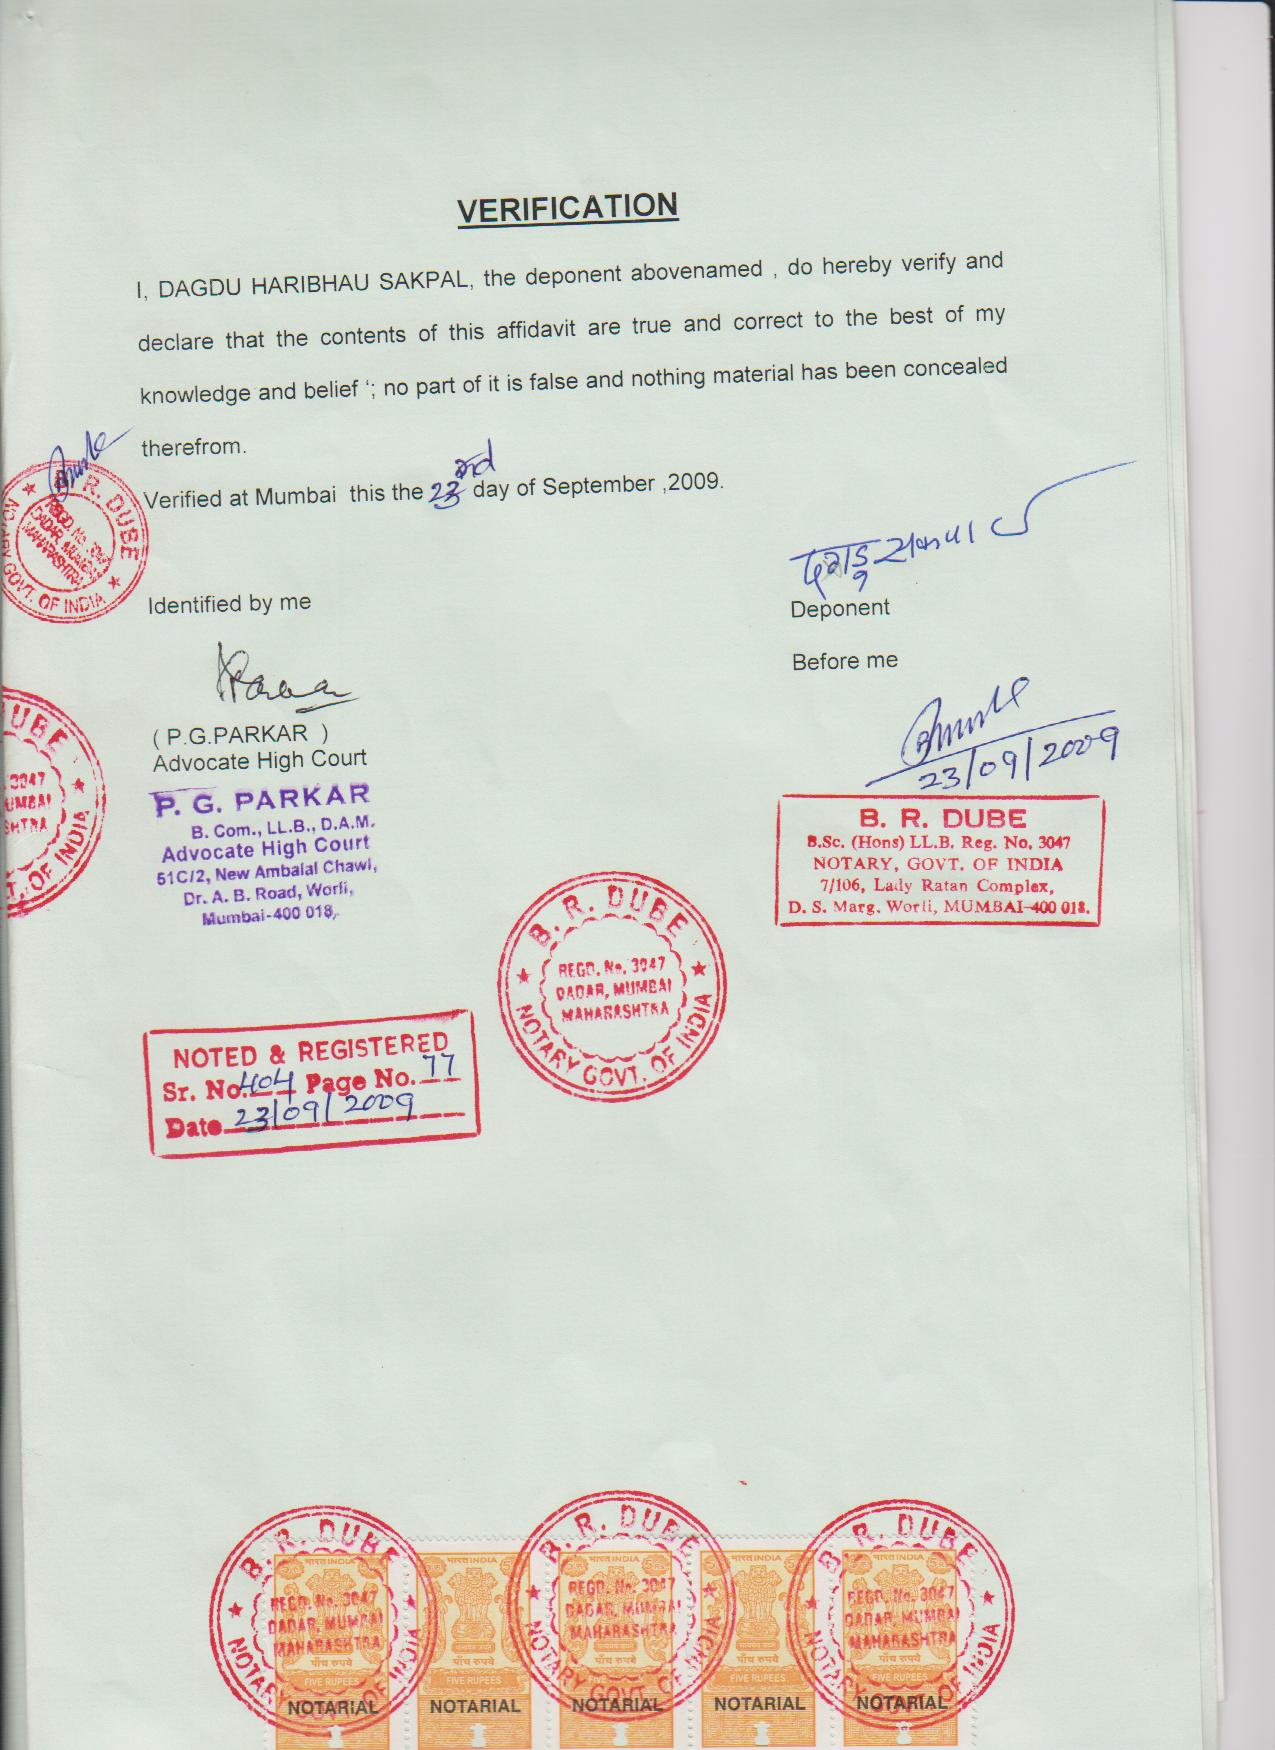 VERIFICATION
I, DAGDU HARIBHAU SAKPAL, the deponent abovenamed , do hereby verify and
declare that the contents of this affidavit are true and correct to the best of my
knowledge and belief ‘; no part of it is false and nothing material has been concealed
therefrom.
Verified at Mumbai this the 23rd day of September ,2009.
B. R. DUBE
REGD. No. 3047
DADAR, MUMBAI
MAHARASHTRA
NOTARY GOVT. OF INDIA
Identified by me
दगडु सकपाळ
Deponent
Before me
( P.G.PARKAR )
Advocate High Court
23/09/2009
P. G. PARKAR
B. Com., LL.B., D.A.M.
Advocate High Court
51C/2, New Ambalal Chawl,
Dr. A. B. Road, Worli,
Mumbai-400 018.
B. R. DUBE
B.Sc. (Hons) LL.B. Reg. No. 3047
NOTARY, GOVT. OF INDIA
7/106, Lady Ratan Complex,
D. S. Marg. Worli, MUMBAI-400 018.
UBE
3047
UMBAI
SHTRA
T. OF INDIA
B. R. DUBE
REGD. No. 3047
DADAR, MUMBAI
MAHARASHTRA
NOTARY GOVT. OF INDIA
NOTED & REGISTERED
Sr. No. 404 Page No. 77
Date 23/09/2009
B. R. DUBE B. R. DUBE B. R. DUBE
भारत INDIA भारत INDIA भारत INDIA भारत INDIA भारत INDIA
REGD. No. 3047 REGD. No. 3047 REGD. No. 3047
DADAR, MUMBAI DADAR, MUMBAI DADAR, MUMBAI
MAHARASHTRA MAHARASHTRA MAHARASHTRA
पाँच रुपये पाँच रुपये पाँच रुपये पाँच रुपये पाँच रुपये
FIVE RUPEES FIVE RUPEES FIVE RUPEES FIVE RUPEES FIVE RUPEES
NOTARY GOVT. OF INDIA NOTARY GOVT. OF INDIA NOTARY GOVT. OF INDIA
NOTARIAL NOTARIAL NOTARIAL NOTARIAL NOTARIAL